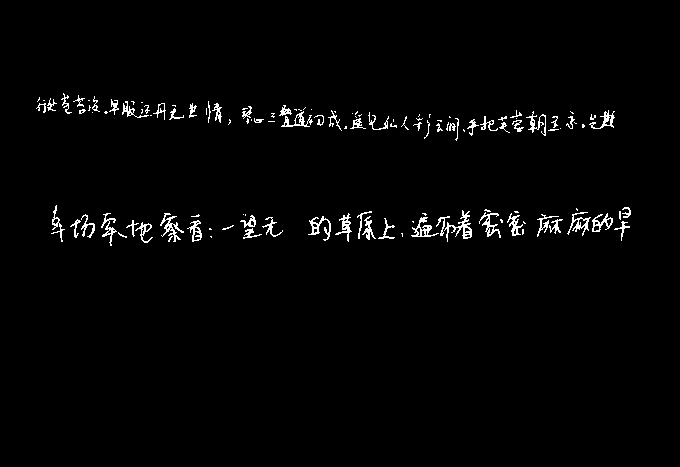 行处苍苔没。早服还丹无世情，琴心三叠道初成。遥见仙人彩云间，手把芙蓉朝玉京。先期
车场实地察看：一望无 的草原上，遍布着密密麻麻的旱